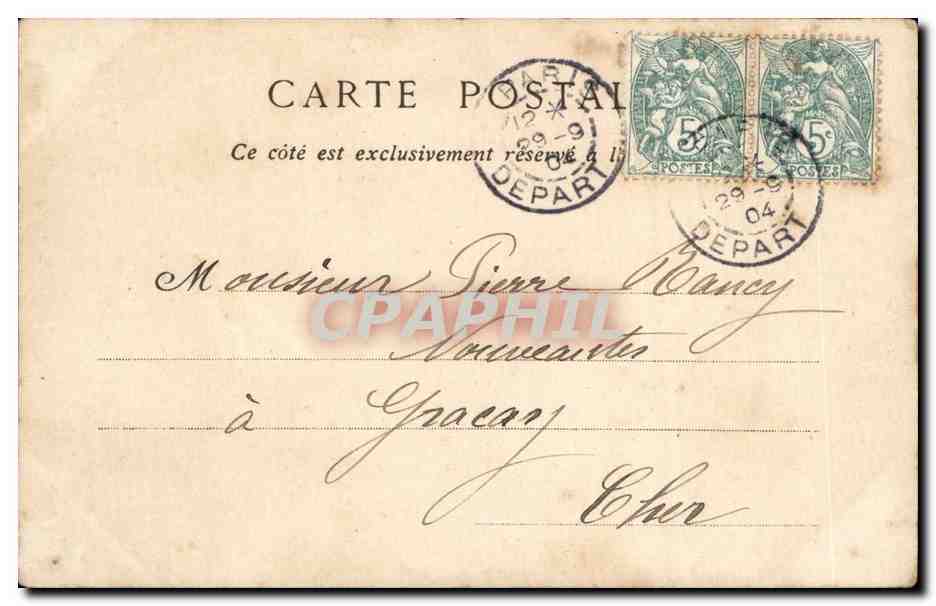 CARTE POSTAL
Ce côté est exclusivement réservé à l
PARIS
12 *
29 - 9
04
DEPART
5
POSTES
5c
POSTES
29 - 9
04
DEPART
Monsieur Pierre Rancy
CPAPHIL
Nouveautés
à Graçay
Cher